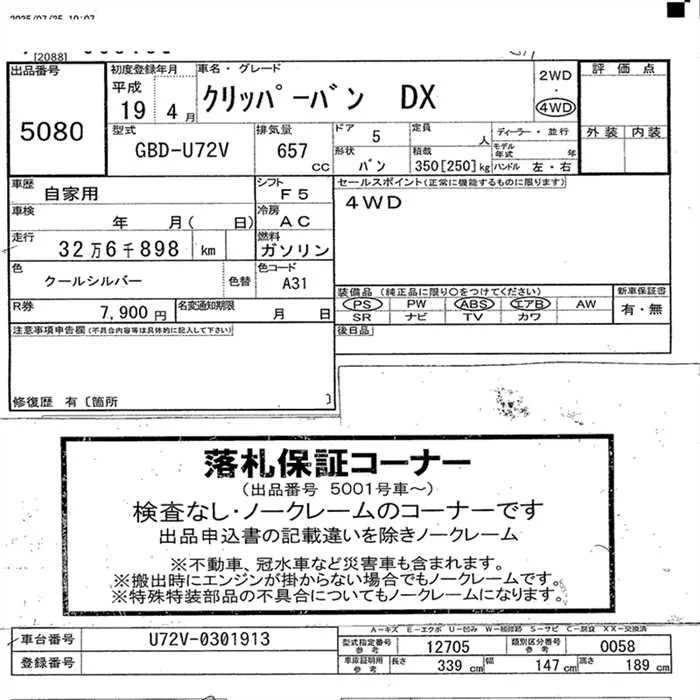 [2088]
出品番号
5080
初度登録年月
平成
19 4月
車名・グレード
クリッパーバン DX
2WD
・
4WD
評価点
外装 内装
型式
GBD-U72V
排気量
657
cc
ドア 5
定員 人
形状 バン
積載 350[250]kg
ディーラー・並行
モデル年式 年
ハンドル 左・右
車歴
自家用
シフト
F5
セールスポイント(正常に機能するものに限ります)
4WD
車検
年 月( 日)
冷房
AC
走行
32万6千898 km
燃料
ガソリン
色
クールシルバー
色替
色コード
A31
装備品 (純正品に限り○をつけてください)
PS PW ABS エアB AW
SR ナビ TV カワ
新車保証書
有・無
R券
7,900円
名変通知期限
月 日
後日品
注意事項申告欄(不具合内容等は具体的に記入して下さい)
修復歴 有〔箇所 〕
落札保証コーナー
(出品番号 5001号車~)
検査なし・ノークレームのコーナーです
出品申込書の記載違いを除きノークレーム
※不動車、冠水車など災害車も含まれます。
※搬出時にエンジンが掛からない場合でもノークレームです。
※特殊特装部品の不具合についてもノークレームになります。
車台番号
U72V-0301913
型式指定番号
参考
12705
類別区分番号
参考
0058
登録番号
車庫証明用
参考
長さ 339 cm 幅 147 cm 高さ 189 cm